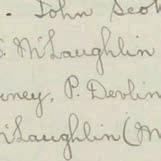 . John Scot
S. McLaughlin
rney, P. Devlin
McLaughlin (M